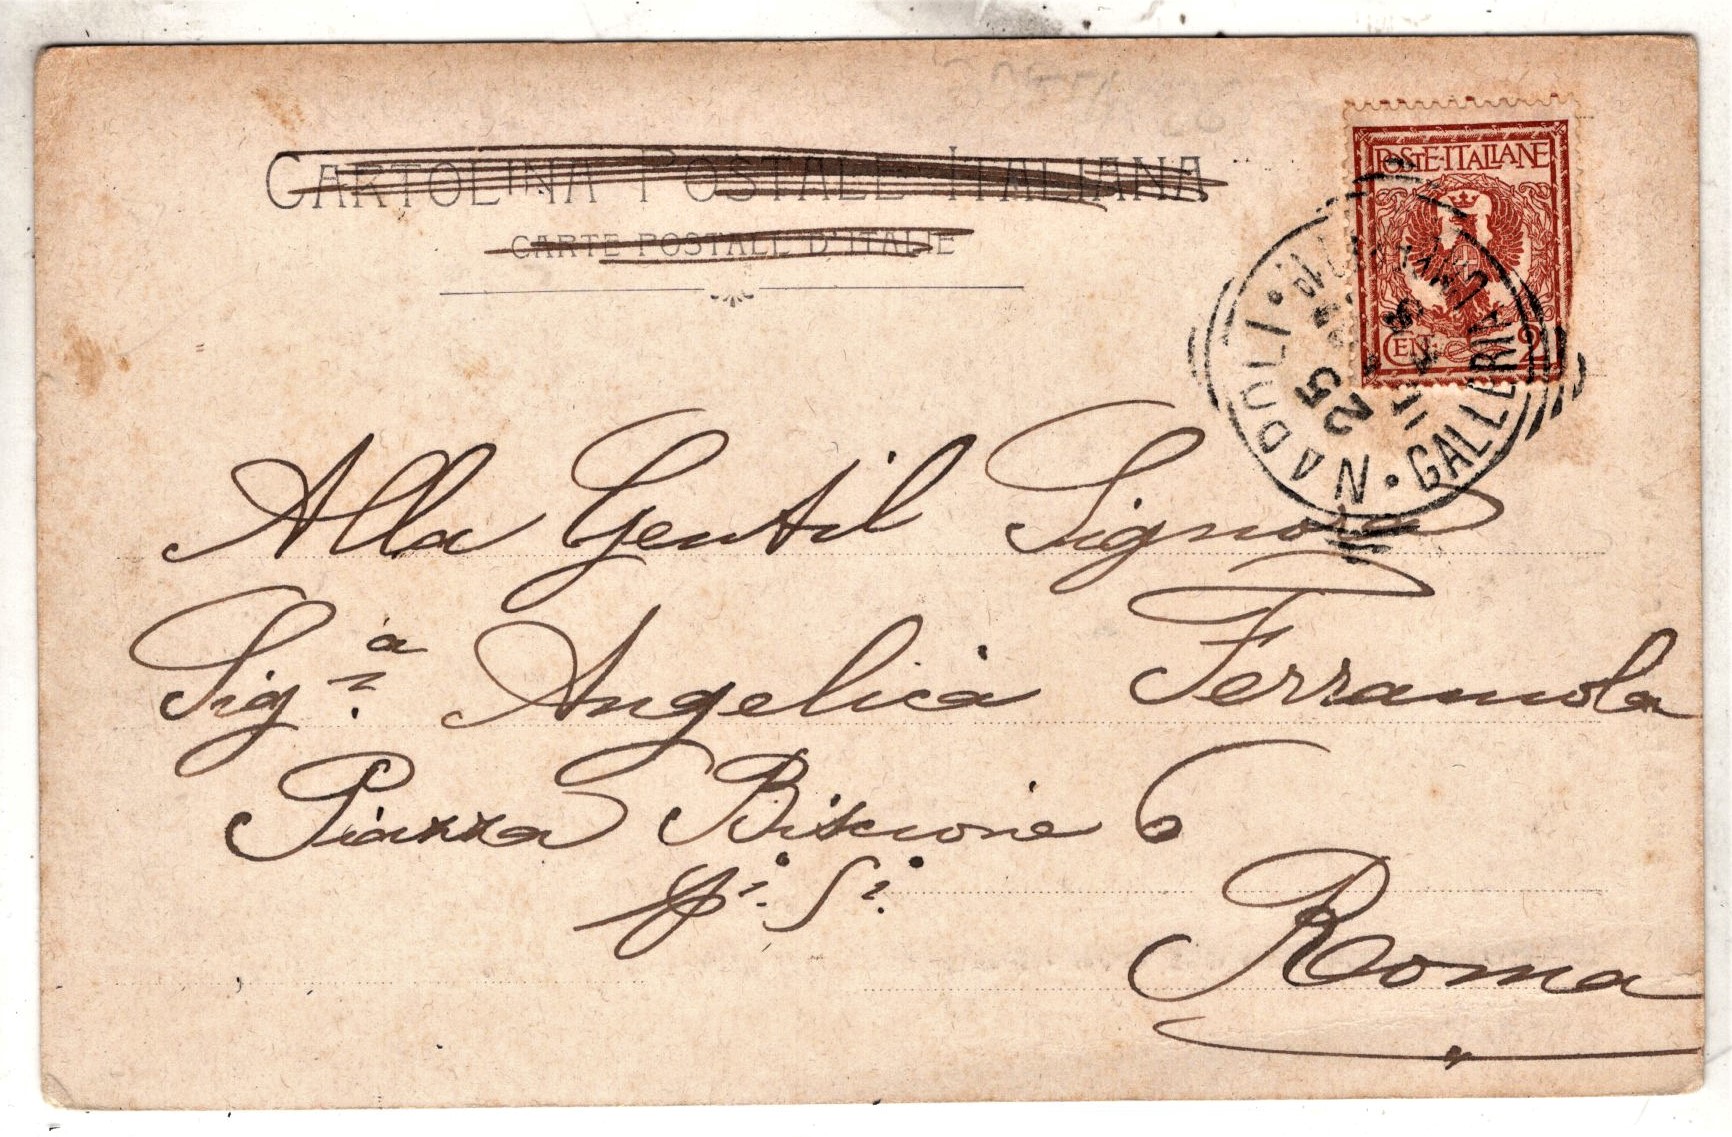 CARTOLINA POSTALE ITALIANA
CARTE POSTALE D'ITALIE
POSTE·ITALIANE
CEN. 2
NAPOLI · GALLERIA
25
Alla Gentil Signora
Sig.ª Angelica Ferramola
Piazza Biscione 6
Roma